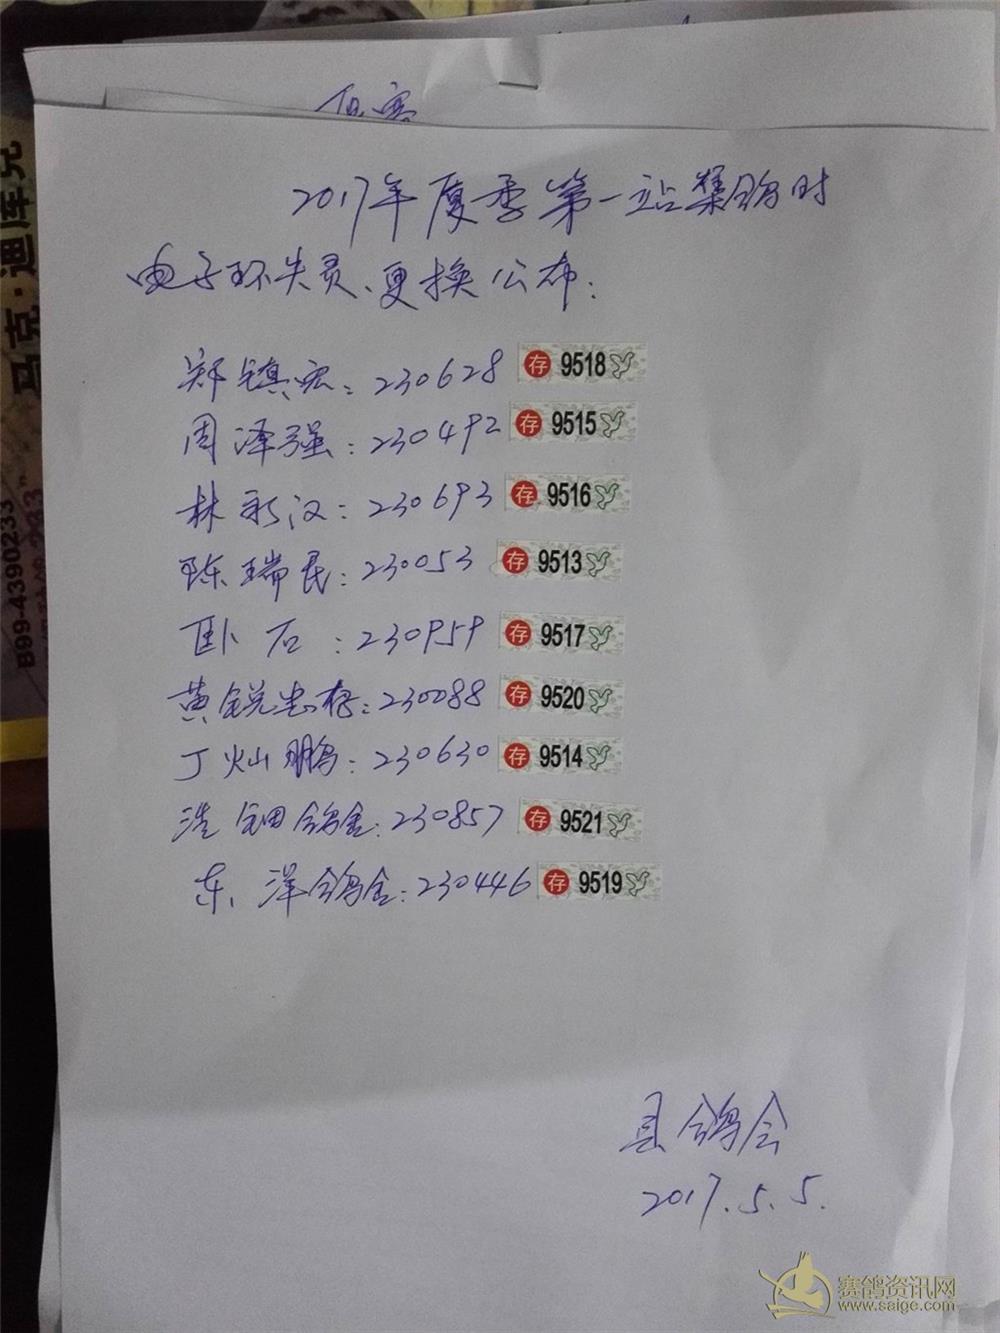 2017年夏季第一站集鸽时
电子环失灵、更换公布:
郑镇宏: 230628 存 9518
周泽强: 230492 存 9515
林新汉: 230693 存 9516
陈瑞民: 230053 存 9513
卧石: 230959 存 9517
黄锐忠存: 230088 存 9520
丁灿鹏: 230630 存 9514
浩钿鸽舍: 230857 存 9521
东洋鸽舍: 230446 存 9519
县鸽会
2017.5.5.
马克·迪库克
B99-4390233
赛鸽资讯网
www.saige.com